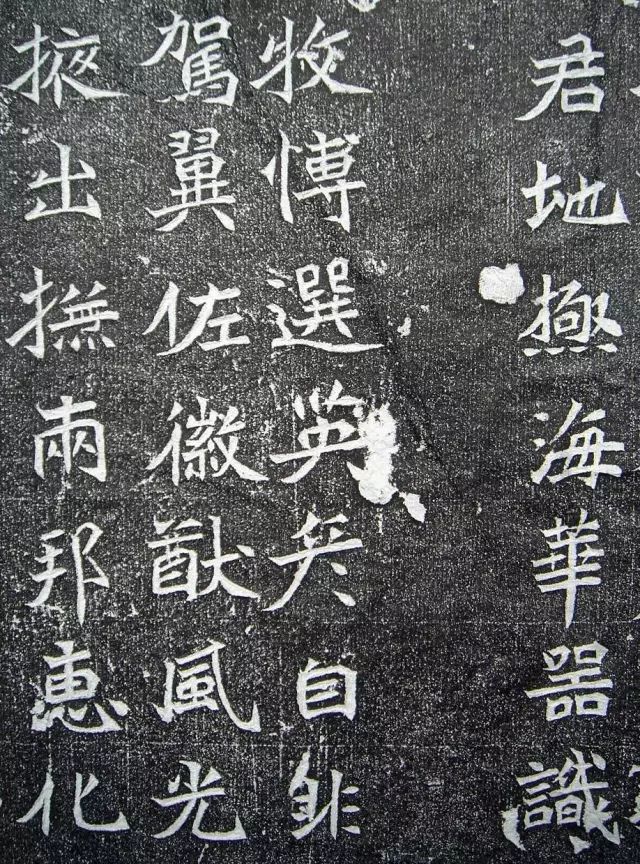 君地極海華器識
牧愽選英矣自非
駕翼佐徽猷風光
掖出撫兩邦惠化